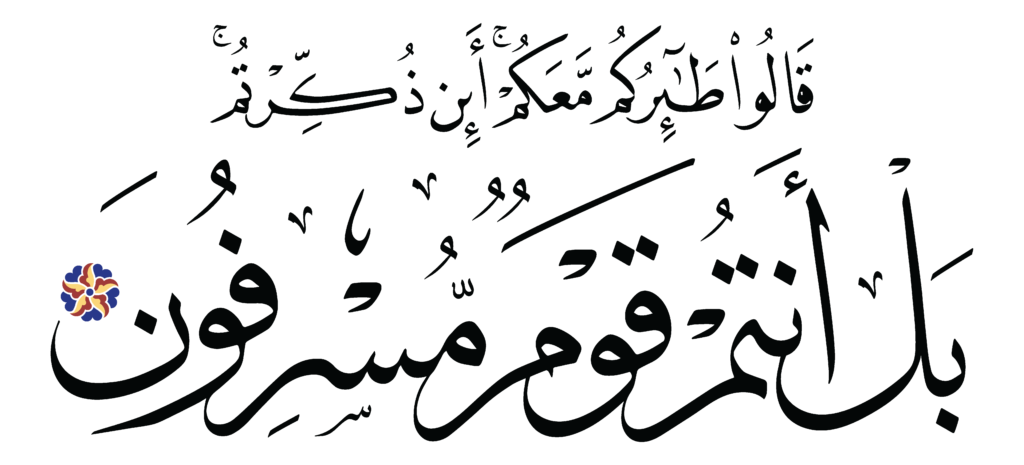 قَالُوا۟ طَـٰٓئِرُكُم مَّعَكُمْ ۚ أَئِن ذُكِّرْتُم ۚ
بَلْ أَنتُمْ قَوْمٌ مُّسْرِفُونَ